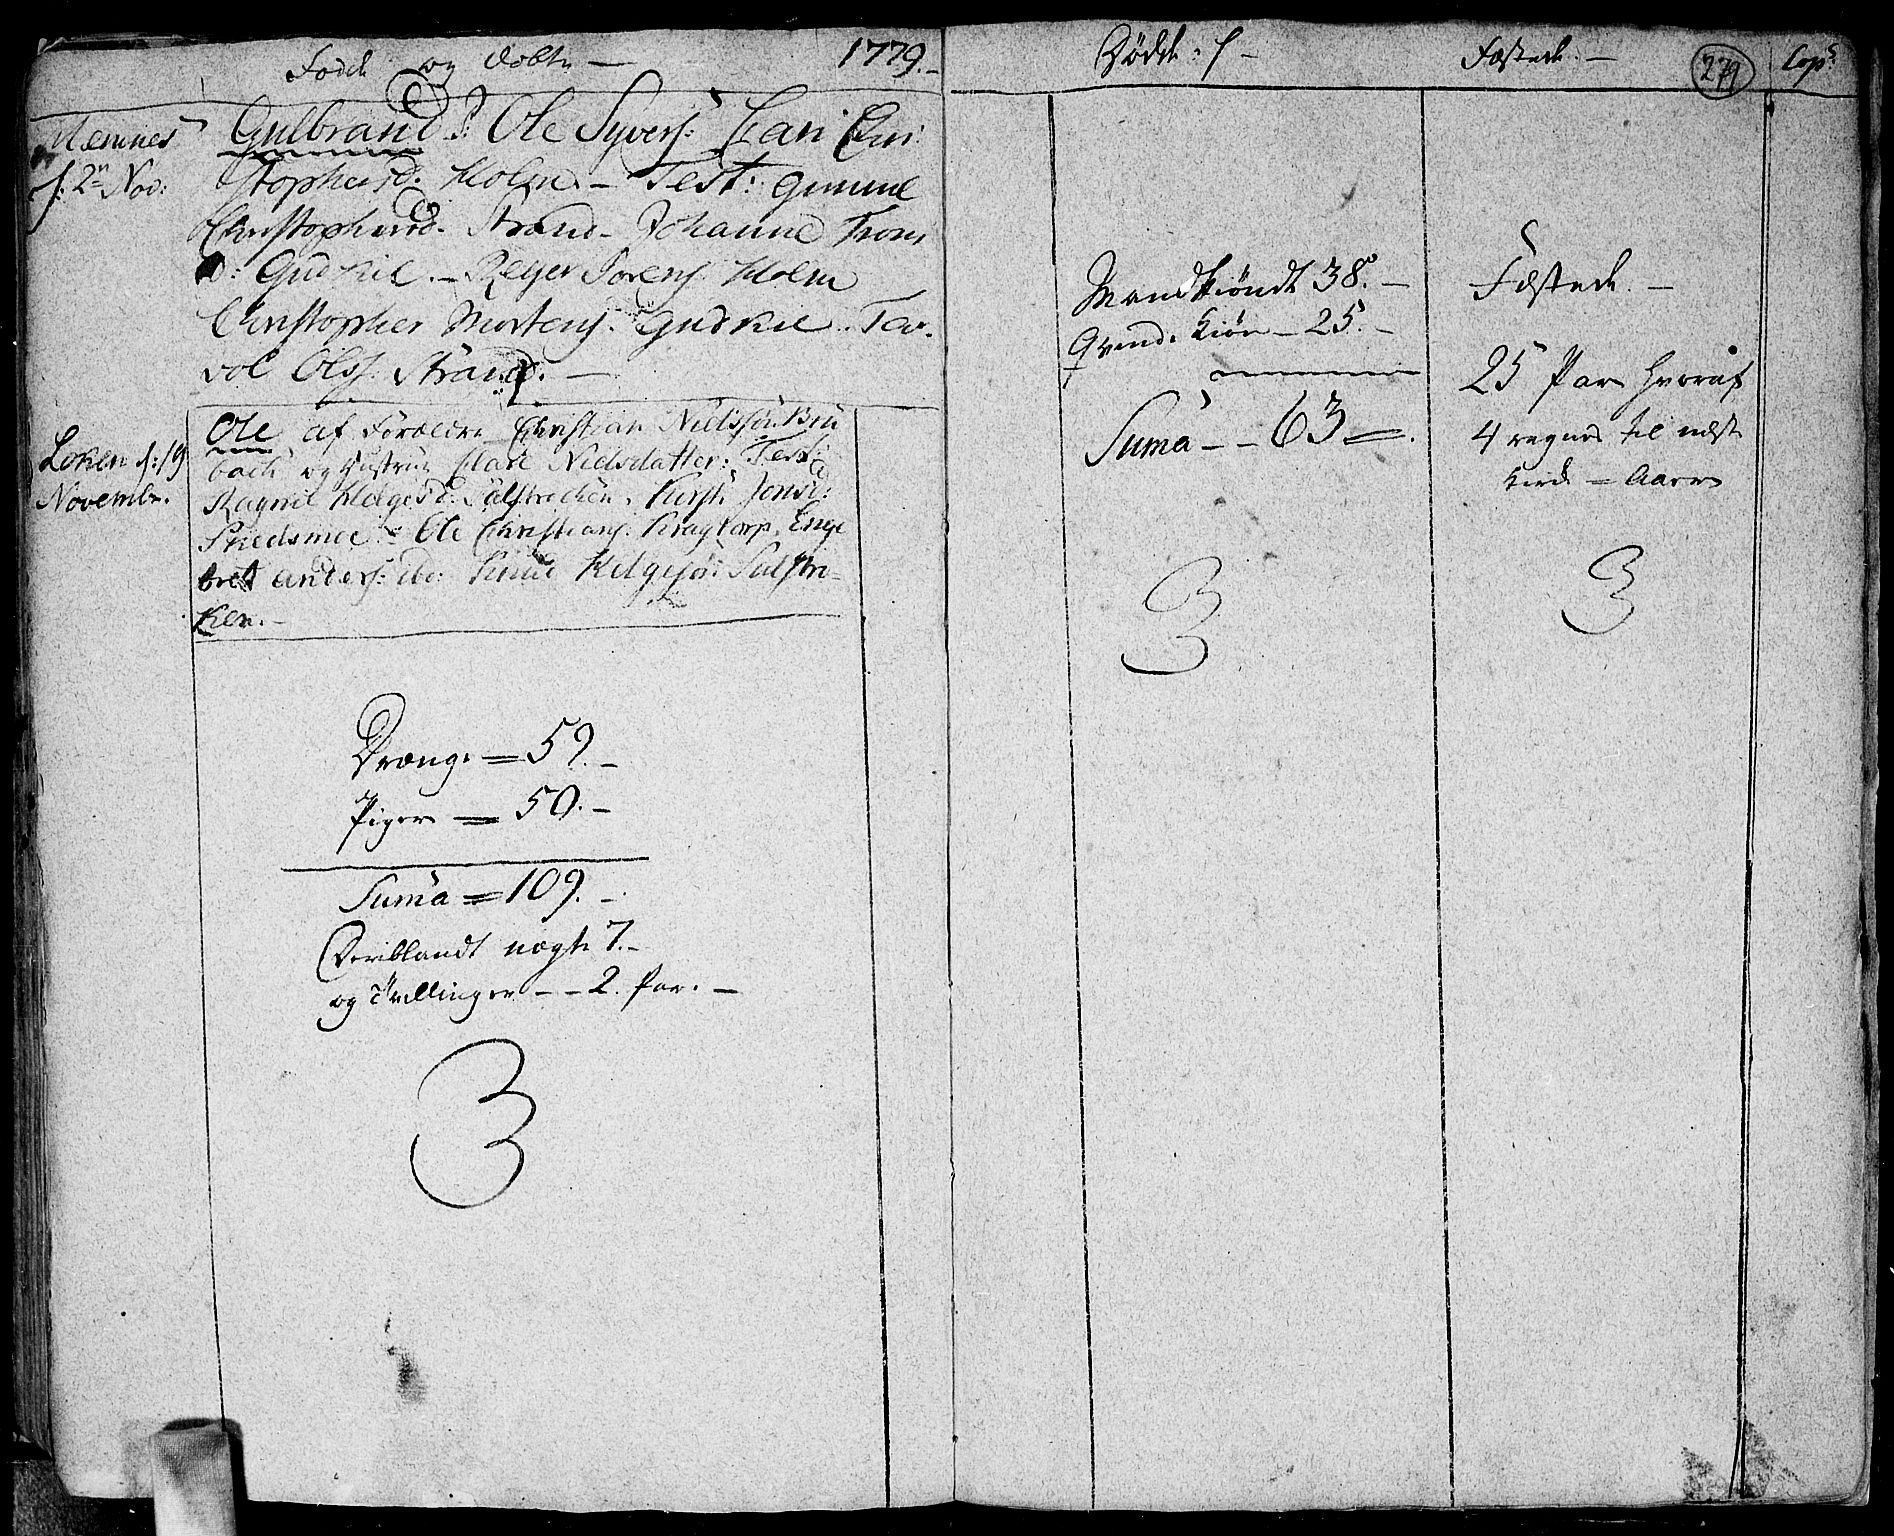 Fødde og døbte — 1779.-
Hemnes
f: 2n Nov:
Gulbrand F: Ole Syvers: Kari Chri:
stophersd. Holm. - Test: Gunnil
Christophersd. Strand - Johanne Trons
d: Gudkil. - Reyer Sørens: Holm
Christopher Mortens: Gudkil. Tar-
vol Olss: Strand. —
Løken f: 19
Novembr.
Ole af Forældre Christian Nielssøn Bru
bach og Hustrue Mari Nielsdatter: Test:
Ragnil Helgesd: Sulstrechen, Kirsti Jonsd:
Skedsmoe - Ole Christians: Kragtorp, Enge
bret Anders: ibd: Knud Helgesøn Sulstre-
ken. -
Drænge = 59. -
Piger = 50. -
Suma = 109. -
Deriblandt uægte 7. -
og Tvillinger - - 2. Par. -
3
Døde: f -
Mandkiøndt 38. -
Qvind. kiøn - 25. -
Suma - - 63 =.
3
Fæstede. -
279
Cop:
Fæstede. -
25 Par hvoraf
4 regnes til næst
Kirke = Aar
3